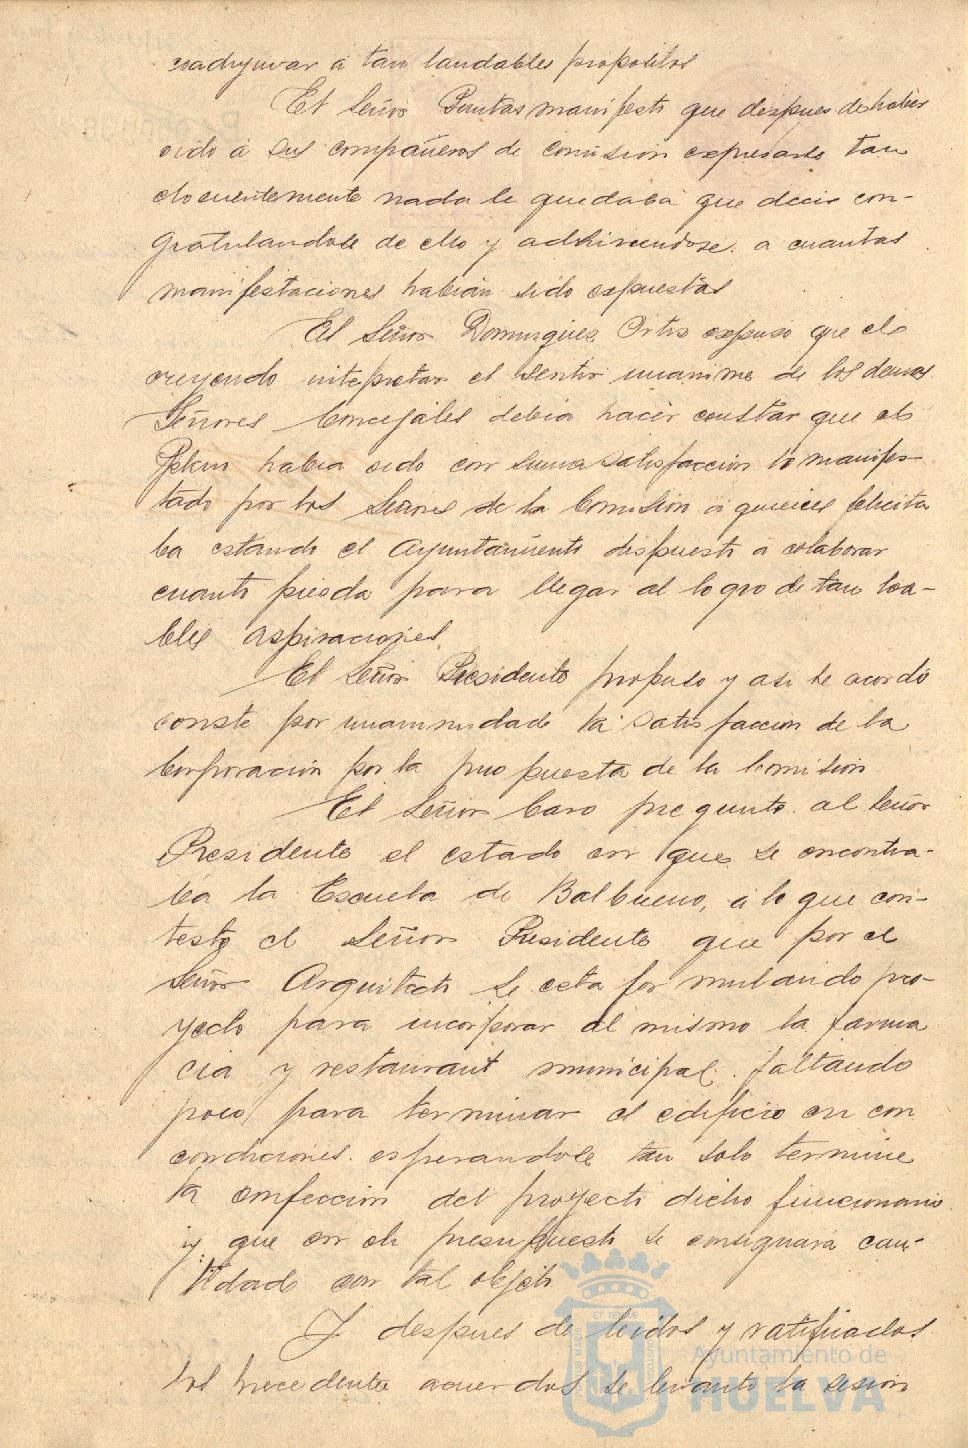 coadyuvar á tan laudables propositos
El Señor Pantas manifesto que despues de haber
oido á sus compañeros de comision expresarse tan
elocuentemente nada le quedaba que decir con-
gratulandose de ello y adhiriendose a cuantas
manifestaciones habian sido expuestas
El Señor Dominguez Ortiz expuso que el
creyendo intepretar el sentir unanime de los demas
Señores Concejales debia hacer constar que el
Pleno habia oido con suma satisfaccion lo manifes-
tado por los Señores de la Comision á quienes felicita
ba estando el Ayuntamiento dispuesto a colaborar
cuanto pueda para llegar al logro de tan loa-
bles aspiraciones
El Señor Presidente propuso y asi se acordó
conste por unanimidad la satisfaccion de la
Corporacion por la propuesta de la Comision
El Señor Caro pregunto al Señor
Presidente el estado en que se encontra-
ba la Escuela de Balbueno, á lo que con-
testo el Señor Presidente que por el
Señor Arquitecto se esta formulando pro-
yecto para incorporar al mismo la farma
cia y restaurant municipal faltando
poco para terminar el edificio en con
condiciones esperandose tan solo termine
la confeccion del proyecto dicho funcionario
y que en el presupuesto se consignara can-
tidad con tal objeto
Y despues de leidos y ratificados
los precedente acuerdos se levanto la sesion
Ayuntamiento de
HUELVA